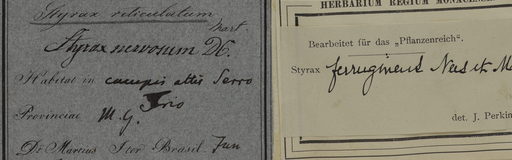 Styrax reticulatum
Mart
Styrax nervosum DC.
Habitat in campis altis Serro
Frio
Provinciae M. G.
Dr Martius Iter Brasil. Jun
HERBARIUM REGIUM MONACENSE
Bearbeitet für das „Pflanzenreich".
Styrax ferrugineus Nees et M
det. J. Perkin